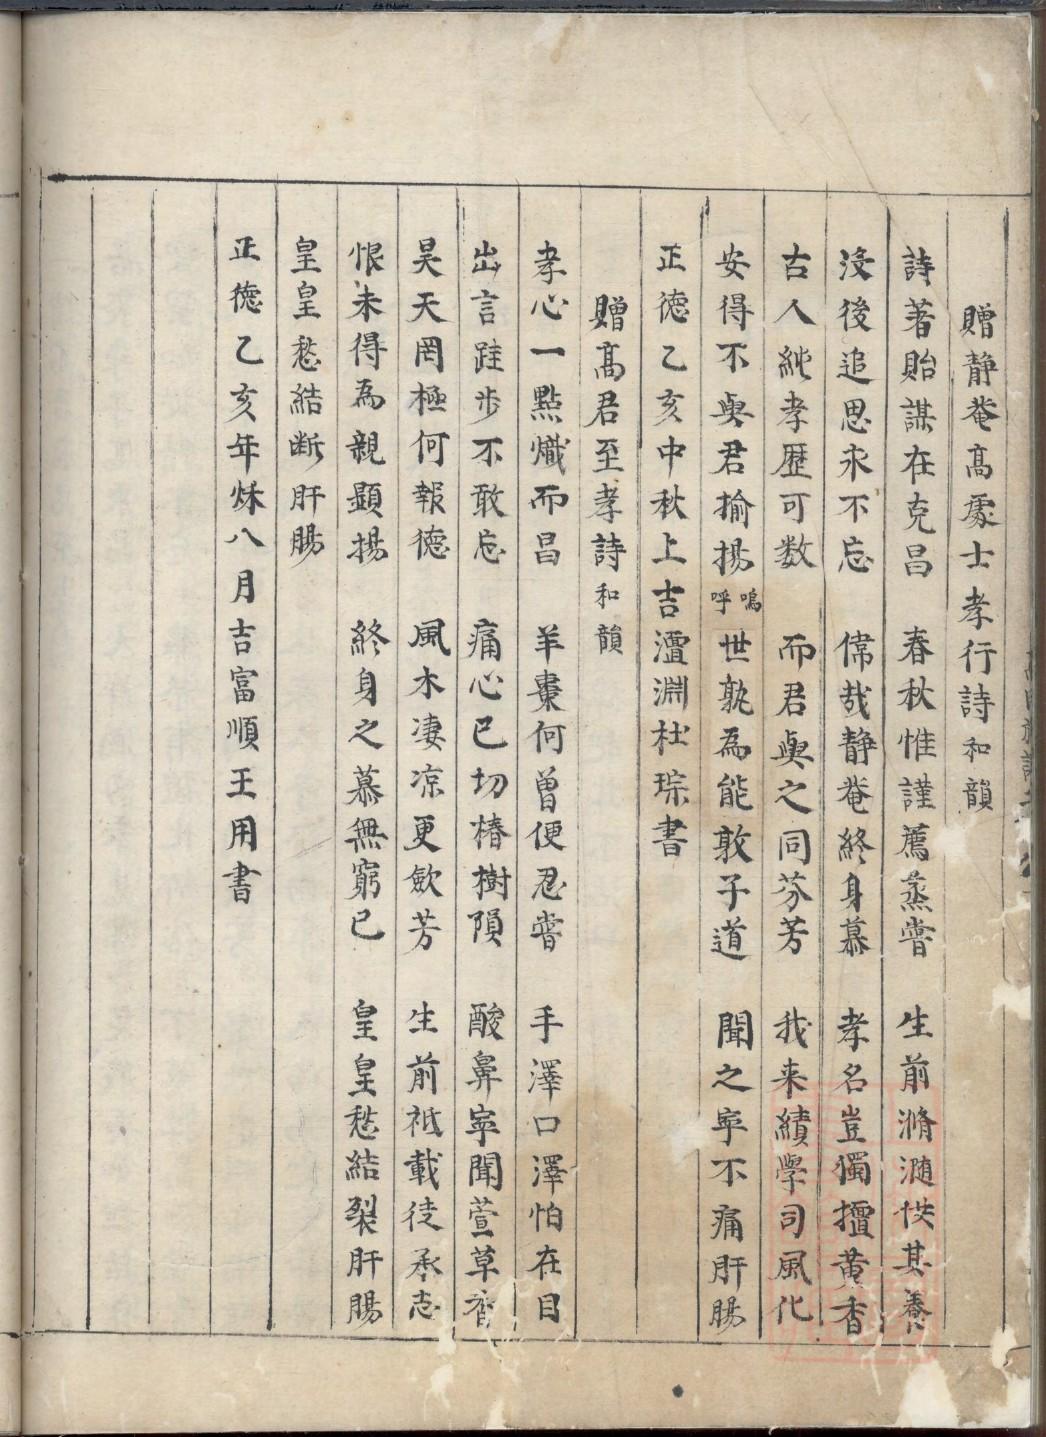 贈靜菴高處士孝行詩和韻
詩著貽謀在克昌　春秋惟謹薦蒸嘗　生前滫瀡供其養
沒後追思永不忘　偉哉靜菴終身慕　孝名豈獨擅黃香
古人純孝歷可数　而君與之同芬芳　我来績學司風化
安得不與君揄揚嗚呼世孰為能敦子道　聞之寧不痛肝腸
正徳乙亥中秋上吉澶淵杜琮書
贈髙君至孝詩和韻
孝心一點熾而昌　羊棗何曽便忍嘗　手澤口澤怕在目
出言跬步不敢忘　痛心已切椿樹隕　酸鼻寧聞萱草香
昊天罔極何報徳　風木凄凉更歛芳　生前祗載徒承志
恨未得為親顯揚　終身之慕無窮已　皇皇愁結裂肝腸
皇皇愁結断肝腸
正徳乙亥年秌八月吉富順王用書